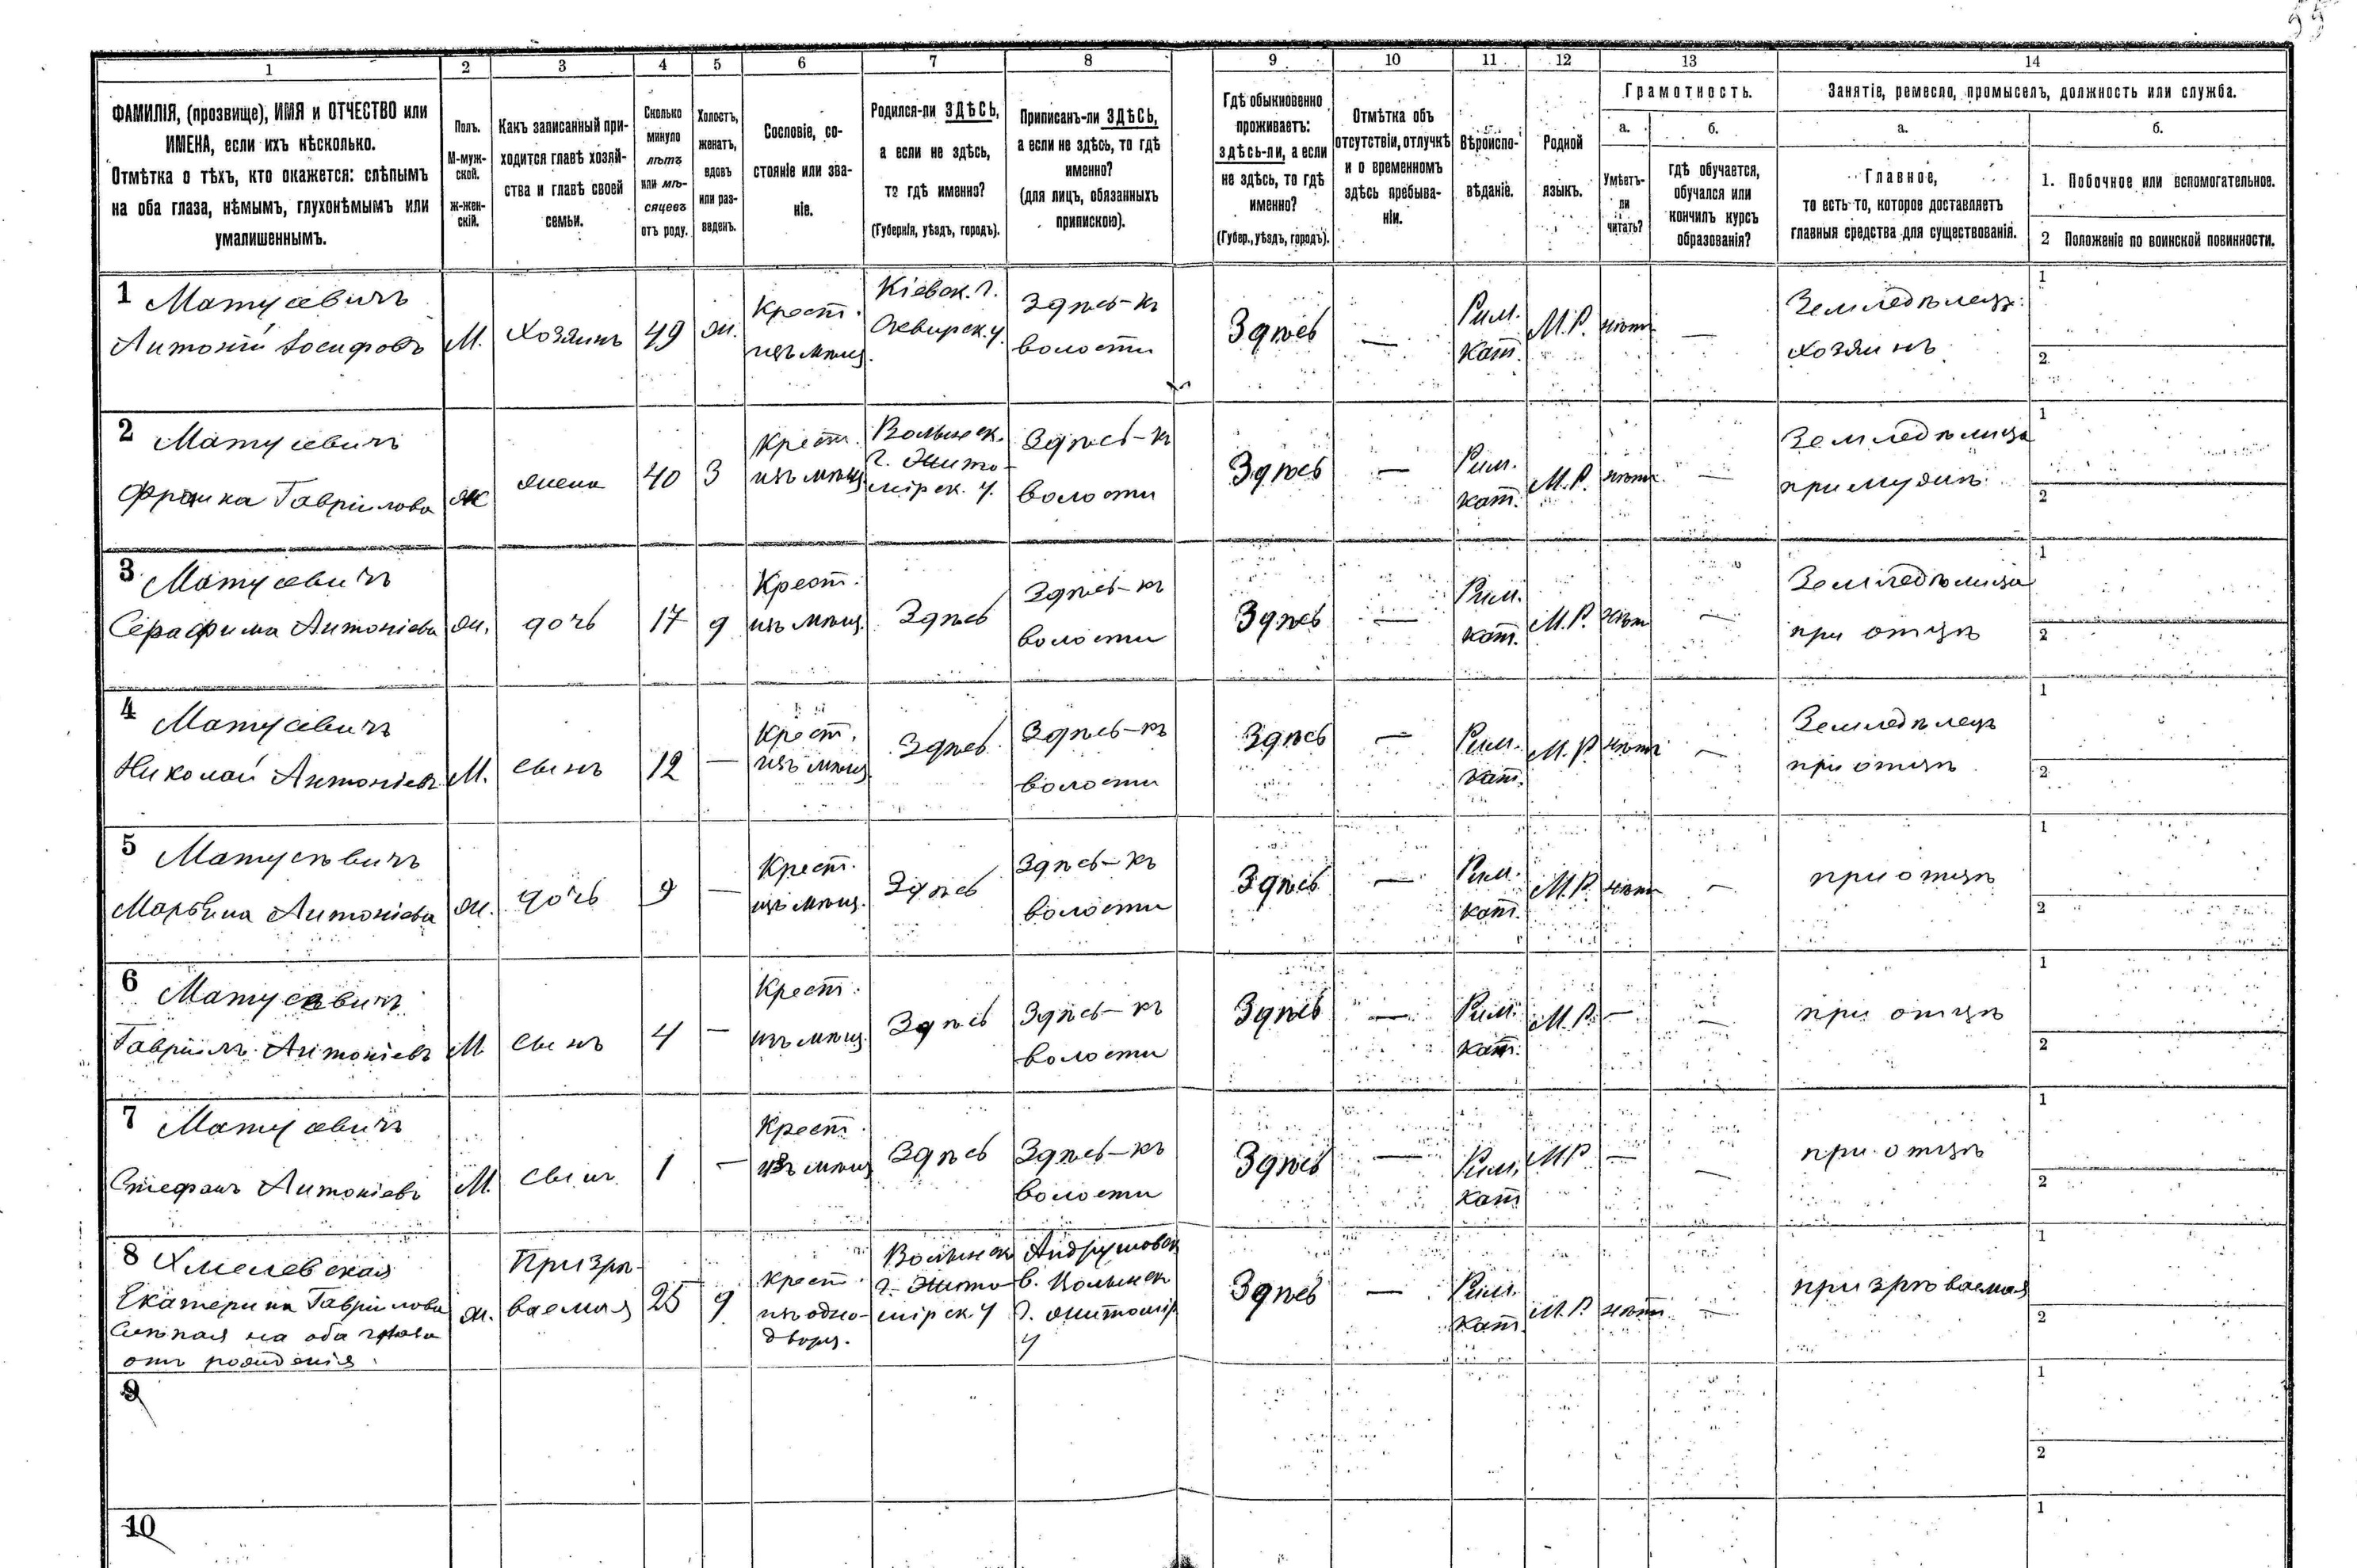 55
1 2 3 4 5 6 7 8 9 10 11 12 13 14
ФАМИЛІЯ, (прозвище), ИМЯ и ОТЧЕСТВО или
ИМЕНА, если ихъ нѣсколько.
Отмѣтка о тѣхъ, кто окажется: слѣпымъ
на оба глаза, нѣмымъ, глухонѣмымъ или
умалишеннымъ.
Полъ.
М-муж-
ской.
ж-жен-
скій.
Какъ записанный при-
ходится главѣ хозяй-
ства и главѣ своей
семьи.
Сколько
минуло
лѣтъ
или мѣ-
сяцевъ
отъ роду.
Холостъ,
женатъ,
вдовъ
или раз-
веденъ.
Сословіе, со-
стояніе или зва-
ніе.
Родился-ли ЗДѢСЬ,
а если не здѣсь,
то гдѣ именно?
(Губернія, уѣздъ, городъ).
Приписанъ-ли ЗДѢСЬ,
а если не здѣсь, то гдѣ
именно?
(для лицъ, обязанныхъ
припискою).
Гдѣ обыкновенно
проживаетъ:
здѣсь-ли, а если
не здѣсь, то гдѣ
именно?
(Губер., уѣздъ, городъ).
Отмѣтка объ
отсутствіи, отлучкѣ
и о временномъ
здѣсь пребыва-
ніи.
Вѣроиспо-
вѣданіе.
Родной
языкъ.
Грамотность.
а.
Умѣетъ-
ли
читать?
б.
Гдѣ обучается,
обучался или
кончилъ курсъ
образованія?
Занятіе, ремесло, промыселъ, должность или служба.
а.
Главное,
то есть то, которое доставляетъ
главныя средства для существованія.
б.
1. Побочное или вспомогательное.
2 Положеніе по воинской повинности.
1 Матусевичъ
Антоній Іосифовъ
М.
Хозяинъ
49
ж.
Крест.
изъ мѣщ.
Кіевск. г.
Сквирск. у.
Здѣсь-къ
волости
Здѣсь
—
Рим.
кат.
М.Р.
нѣтъ
—
Земледѣлецъ
хозяинъ
1
2
2 Матусевичъ
Франка Гаврилова
ж
жена
40
З
Крест.
изъ мѣщ.
Волынск.
г. Жито-
мірск. у.
Здѣсь-къ
волости
Здѣсь
—
Рим.
кат.
М.Р.
нѣтъ
—
Земледѣлица
при мужѣ
1
2
3 Матусевичъ
Серафима Антоніева
ж.
дочь
17
д
Крест.
изъ мѣщ.
Здѣсь
Здѣсь-къ
волости
Здѣсь
—
Рим.
кат.
М.Р.
нѣтъ
—
Земледѣлица
при отцѣ
1
2
4 Матусевичъ
Николай Антоніевъ
М.
сынъ
12
—
Крест.
изъ мѣщ.
Здѣсь
Здѣсь-къ
волости
Здѣсь
—
Рим.
кат.
М.Р.
нѣтъ
—
Земледѣлецъ
при отцѣ
1
2
5 Матусѣвичъ
Марьяна Антоніева
ж.
дочь
9
—
Крест.
изъ мѣщ.
Здѣсь
Здѣсь-къ
волости
Здѣсь
—
Рим.
кат.
М.Р.
нѣтъ
—
при отцѣ
1
2
6 Матусевичъ
Гавріилъ Антоніевъ
М
сынъ
4
—
Крест.
изъ мѣщ.
Здѣсь
Здѣсь-къ
волости
Здѣсь
—
Рим.
кат.
М.Р.
—
—
при отцѣ
1
2
7 Матусевичъ
Стефанъ Антоніевъ
М.
сынъ
1
—
Крест.
изъ мѣщ
Здѣсь
Здѣсь-къ
волости
Здѣсь
—
Рим.
кат
М.Р.
—
—
при отцѣ
1
2
8 Хмелевская
Екатерина Гаврилова
Слѣпая на оба глаза
отъ рожденія.
ж.
Призрѣ-
ваемая
25
д
крест.
изъ одно-
дворц.
Волынск
г. Жито-
мірск у
Андрушовск
в. Волынск
г. житомір
у
Здѣсь
—
Рим.
кат.
М.Р.
нѣтъ
—
призрѣваемая
1
2
9
1
2
10
1